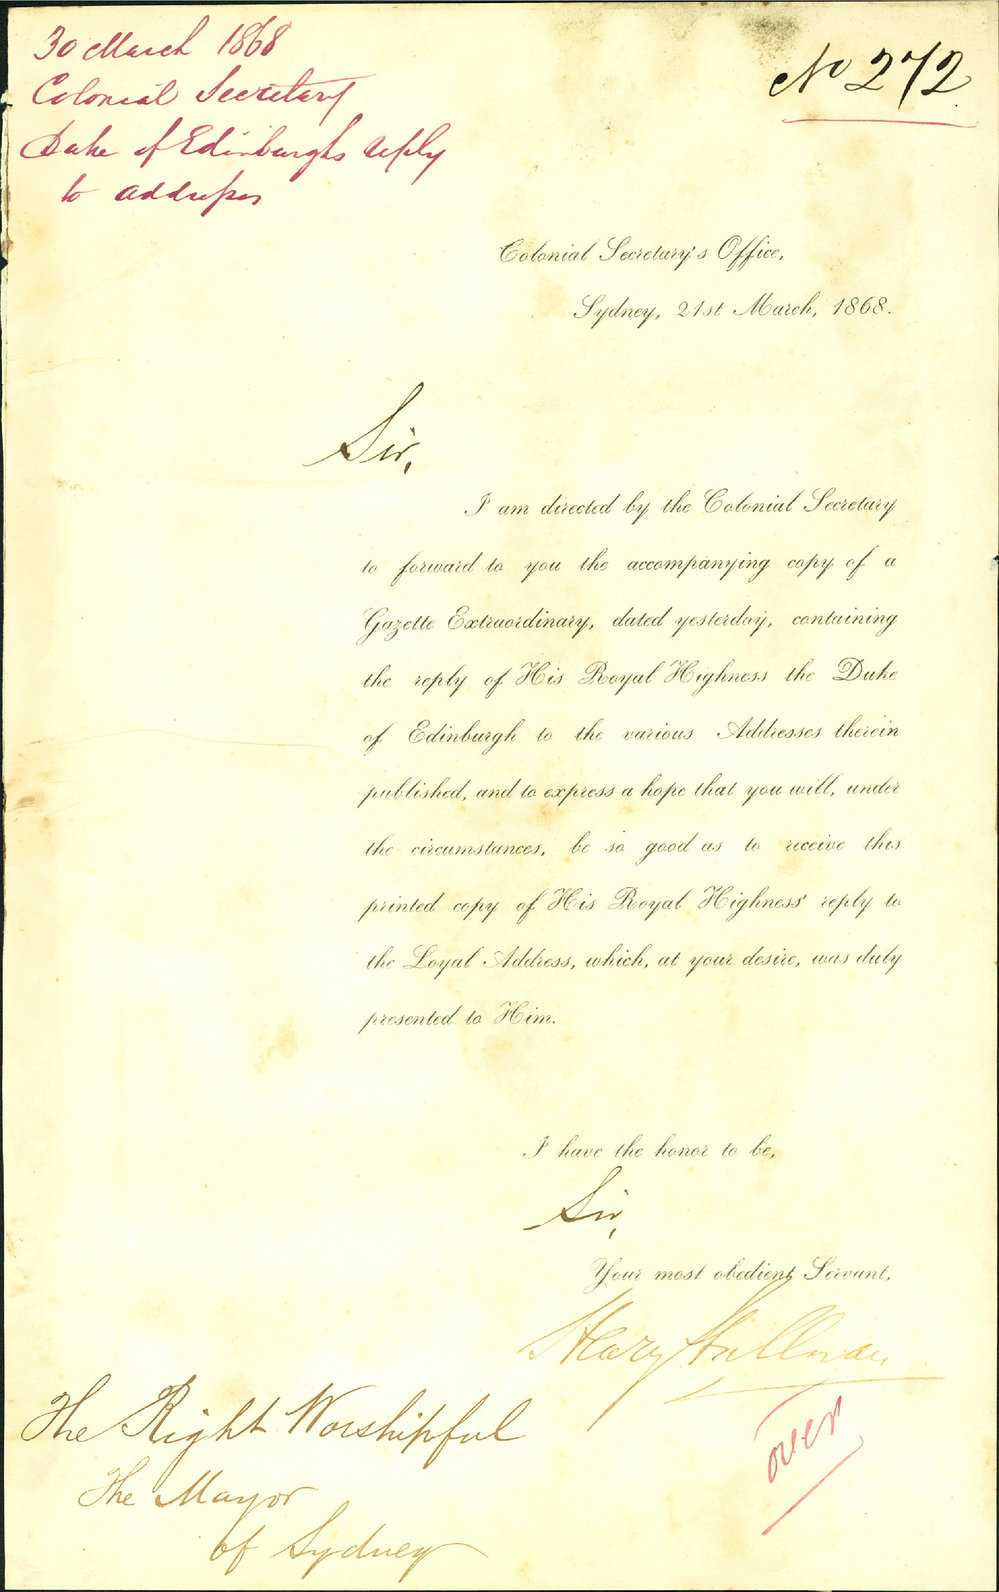 30 March 1868
Colonial Secretary
Duke of Edinburghs reply
to address
No 272
Colonial Secretary's Office,
Sydney, 21st March, 1868.
Sir,
I am directed by the Colonial Secretary
to forward to you the accompanying copy of a
Gazette Extraordinary, dated yesterday, containing
the reply of His Royal Highness the Duke
of Edinburgh to the various Addresses therein
published, and to express a hope that you will, under
the circumstances, be so good as to receive this
printed copy of His Royal Highness' reply to
the Loyal Address, which, at your desire, was duly
presented to Him.
I have the honor to be,
Sir,
Your most obedient Servant,
over
The Right Worshipful
The Mayor
of Sydney